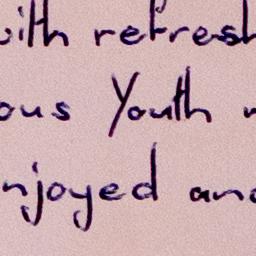 with refresh
ous Youth
njoyed and